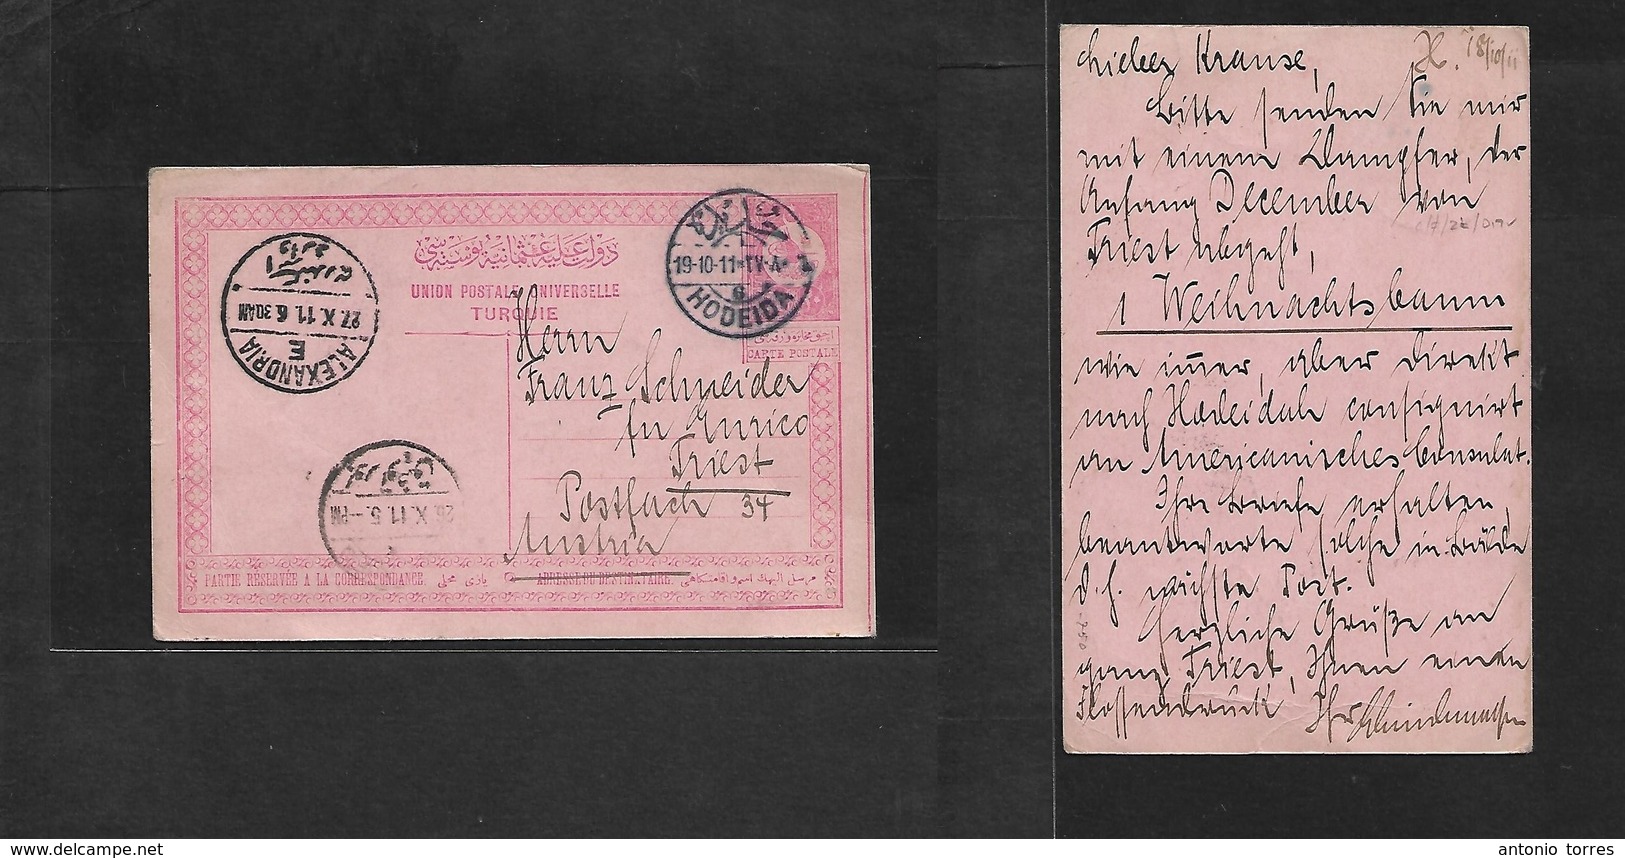 دولت علیه عثمانیه پوسته سی
UNION POSTALE UNIVERSELLE
TURQUIE
19-10-11
HODEIDA
CARTE POSTALE
27. X. 11. 6.30AM
ALEXANDRIA
E
Herrn
Franz Schneider
fu Enrico
Triest
Postfach 34
Austria
X. 11. 5.—PM
PARTIE RESERVÉE A LA CORRESPONDANCE.
ADRESSE DU DESTINATAIRE.
H. 18/10/11
Lieber Krause,
Bitte senden Sie mir
mit einem Dampfer, der
Anfang December von
Triest abgeht,
1 Weihnachtsbaum
wie immer, aber direkt
nach Hodeidah consignirt
an Americanisches Consulat.
Ihre Briefe erhalten,
beantworte solche in Bälde
d. h. nächste Post.
Herzliche Grüße an
ganz Triest, Ihnen einen
Flossendruck Ihr
antonio torres